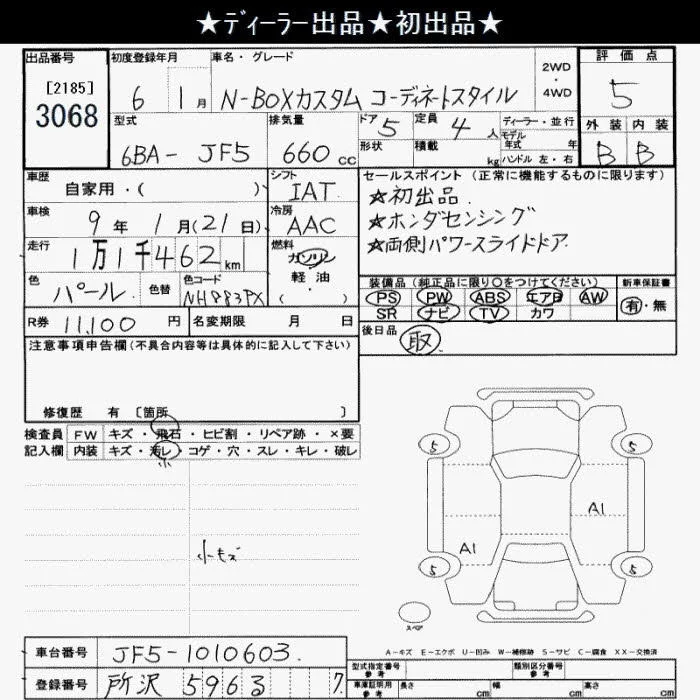 ★ディーラー出品★初出品★
出品番号
[2185]
3068
初度登録年月
6 1月
車名・グレード
N-BOXカスタム コーディネートスタイル
2WD
・
4WD
評価点
5
外装 内装
B B
型式
6BA- JF5
排気量
660 cc
ドア 5
形状
定員 4 人
積載 kg
ディーラー・並行
モデル
年式 年
ハンドル 左・右
車歴
自家用・( )
シフト
IAT
車検
9年 1月(21日)
冷房
AAC
走行
1万1千462km
燃料
ガソリン
・
軽油
( )
色
パール
色替
色コード
NH883PX
R券 11,100 円
名変期限 月 日
セールスポイント (正常に機能するものに限ります)
★初出品.
★ホンダセンシング
★両側パワースライドドア.
装備品(純正品に限り○をつけてください)
PS PW ABS エアB AW
SR ナビ TV カワ
新車保証書
有・無
後日品
取
注意事項申告欄(不具合内容等は具体的に記入して下さい)
修復歴 有 〔箇所 〕
検査員
記入欄
FW キズ・飛石・ヒビ割・リペア跡・×要
内装 キズ・汚レ・コゲ・穴・スレ・キレ・破レ
小
小キズ
5 5
A1
A1
5 5
スペア
A-キズ E-エクボ U-凹み W-補修跡 S-サビ C-腐食 XX-交換済
車台番号 JF5-1010603.
登録番号 所沢 5963 7.
型式指定番号
参考
類別区分番号
参考
車庫証明用
参考
長さ cm 幅 cm 高さ cm